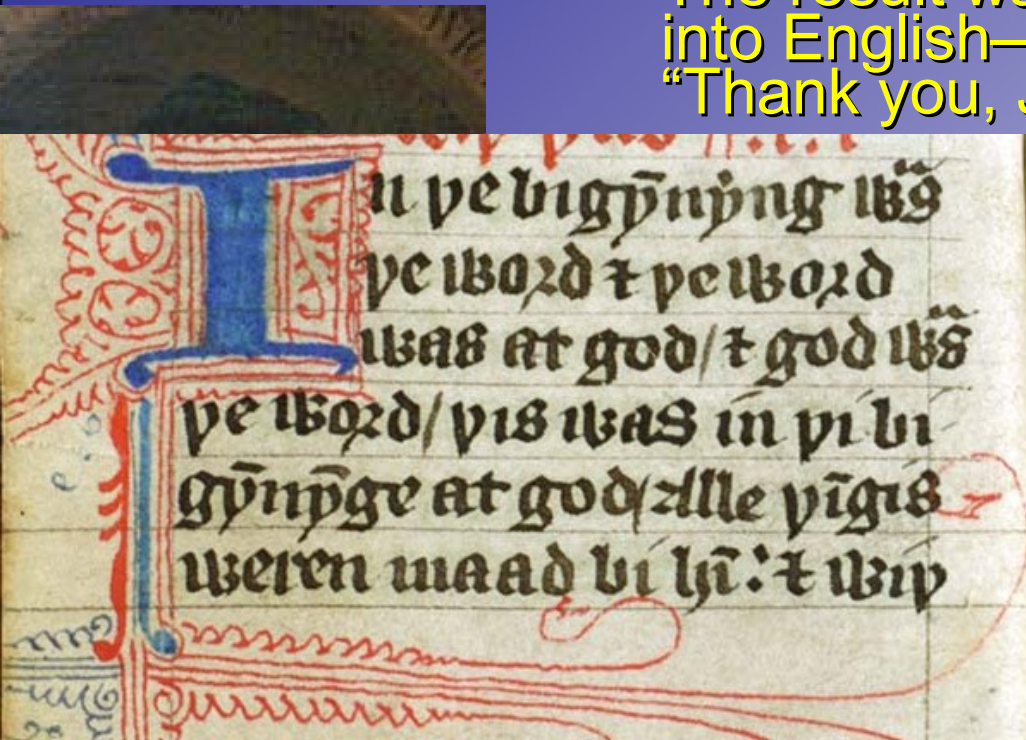 The result
into English—
“Thank you,
In þe bigȳnyng wᵃs
þe word ⁊ þe word
was at god/ ⁊ god wᵃs
þe word/ þis was in þi bi
gȳnȳge at god/ Alle þīgis
weren maad bi hī: ⁊ wiþ